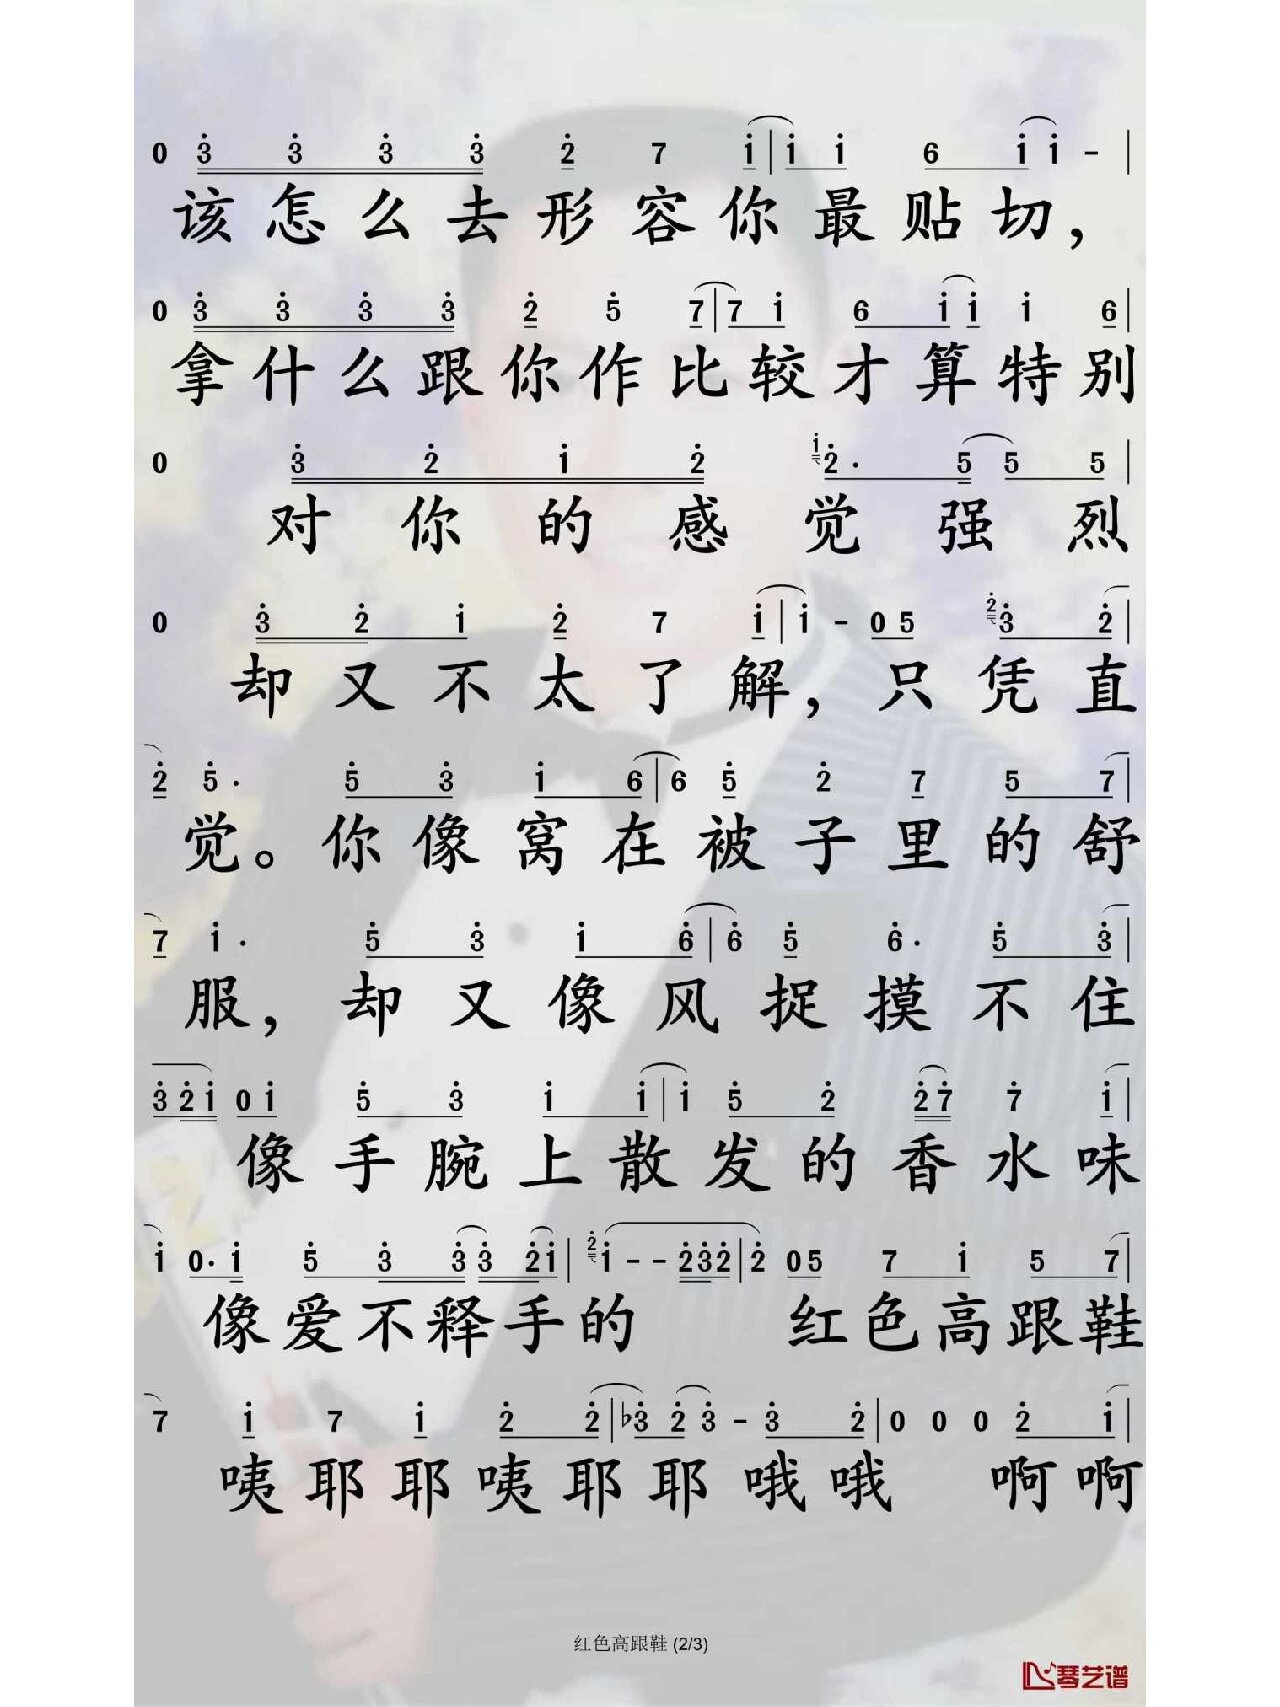 0 3 3 3 3 2 7 1 | 1 1 6 1 1 - |
该怎么去形容你最贴切，
0 3 3 3 3 2 5 7 | 7 1 6 1 1 1 6 |
拿什么跟你作比较才算特别
0 3 2 1 2 1 2· 5 5 5 |
对你的感觉强烈
0 3 2 1 2 7 1 | 1 - 0 5 2 3 2 |
却又不太了解，只凭直
2 5· 5 3 1 6 | 6 5 2 7 5 7 |
觉。你像窝在被子里的舒
7 1· 5 3 1 6 | 6 5 6· 5 3 |
服，却又像风捉摸不住
3 2 1 0 1 5 3 1 1 | 1 5 2 2 7 7 1 |
像手腕上散发的香水味
1 0· 1 5 3 3 3 2 1 | 2 1 - - 2 3 2 | 2 0 5 7 1 5 7 |
像爱不释手的 红色高跟鞋
7 1 7 1 2 2 | ♭3 2 3 - 3 2 | 0 0 0 2 1 |
咦耶耶咦耶耶哦哦 啊啊
红色高跟鞋 (2/3)
琴艺谱